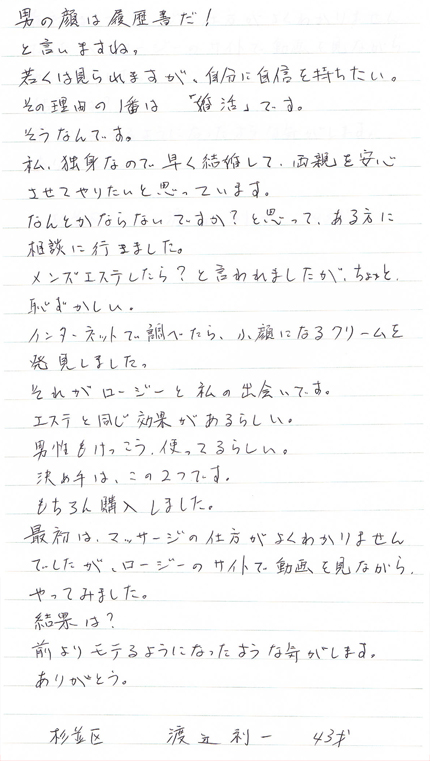 男の顔は履歴書だ!
と言いますね。
若くは見られますが、自分に自信を持ちたい。
その理由の1番は「婚活」です。
そうなんです。
私、独身なので早く結婚して、両親を安心
させてやりたいと思っています。
なんとかならないですか?と思って、ある方に
相談に行きました。
メンズエステしたら?と言われましたが、ちょっと、
恥ずかしい。
インターネットで調べたら、小顔になるクリームを
発見しました。
それがロージーと私の出会いです。
エステと同じ効果があるらしい。
男性もけっこう、使ってるらしい。
決め手は、この2つです。
もちろん購入しました。
最初は、マッサージの仕方がよくわかりません
でしたが、ロージーのサイトで動画を見ながら、
やってみました。
結果は?
前よりモテるようになったような気がします。
ありがとう。
杉並区 渡辺利一 43才